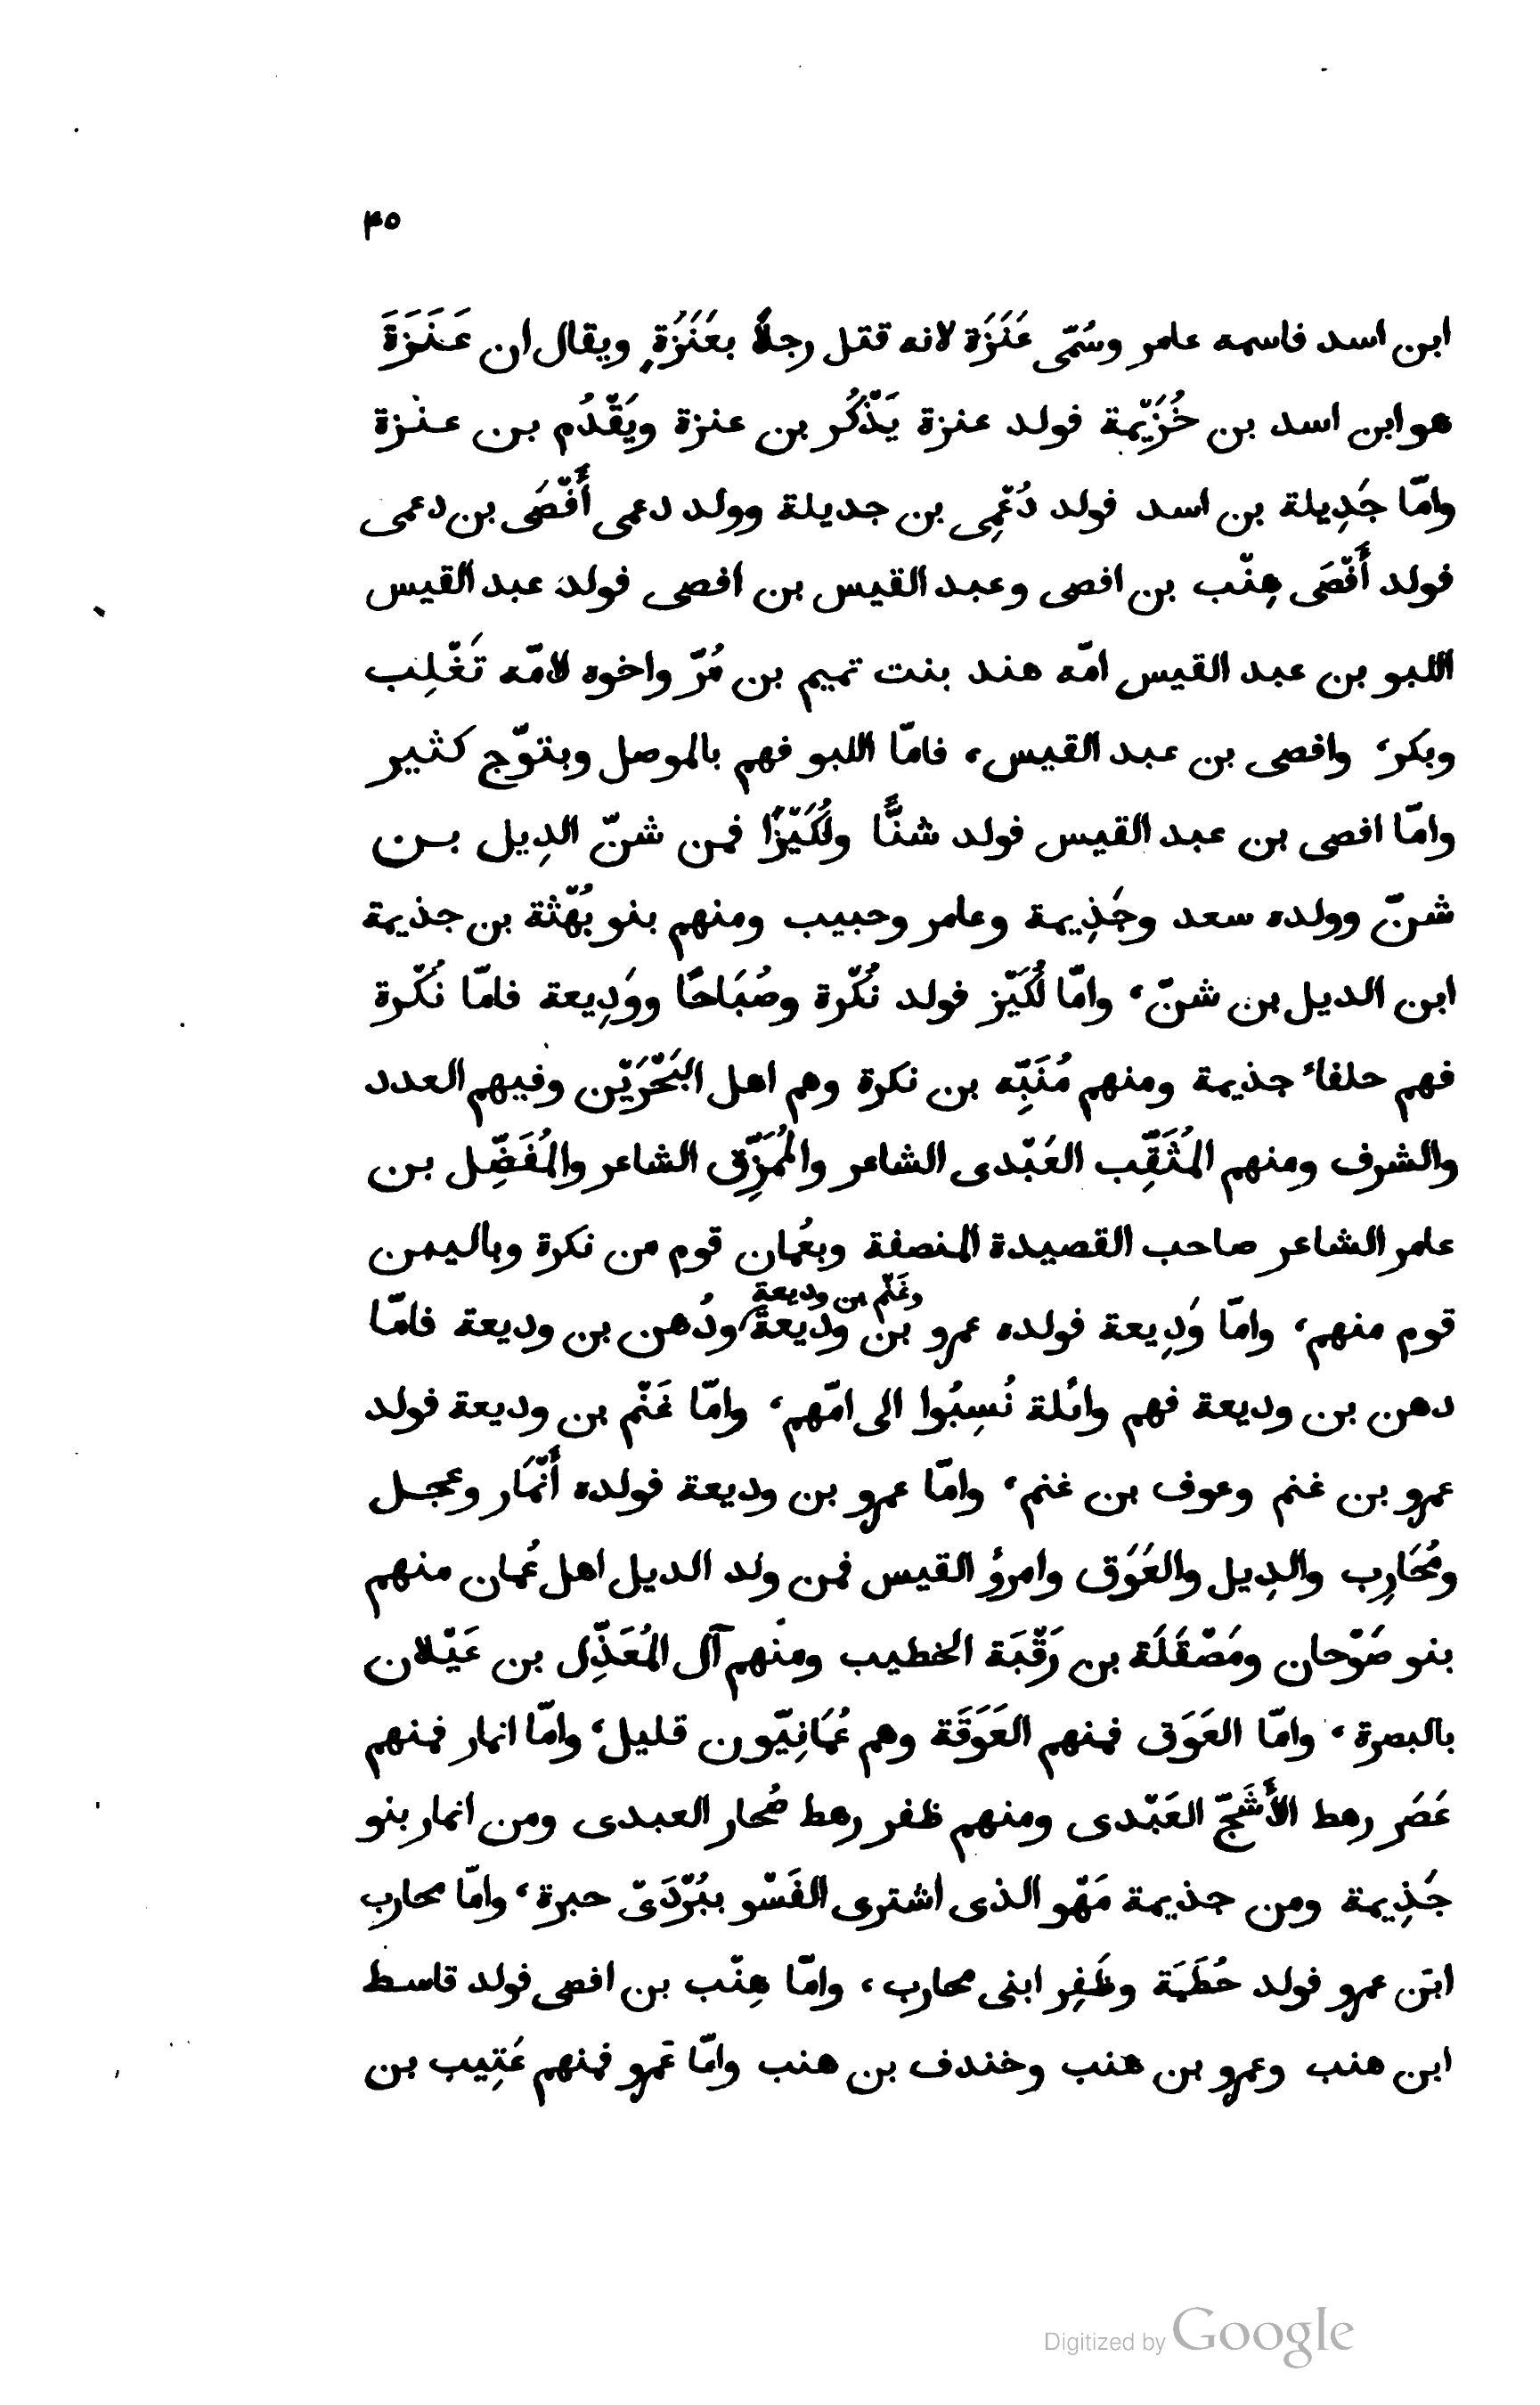 ٤٥
ابن اسد فاسمه عامر وسُمّى عَنَزَة لانه قتل رجلًا بعَنَزَةٍ ويقال ان عَنَزَةَ
هو ابن اسد بن خُزَيْمة فولد عنزة يَذْكُر بن عنزة ويَقْدُم بن عنزة
وامّا جَدِيلة بن اسد فولد دُعْمِى بن جديلة وولد دعمى أَفْصَى بن دعمى
فولد أَفْصَى هِنْب بن افصى وعبد القيس بن افصى فولد عبد القيس
اللبو بن عبد القيس امّه هند بنت تميم بن مُرّ واخوه لامّه تَغْلِب
وبكر، وافصى بن عبد القيس، فامّا اللبو فهم بالموصل وبتوّج كثير
وامّا افصى بن عبد القيس فولد شنًّا ولُكَيْزًا فمن شنّ الدِيل بن
شنّ وولده سعد وجَذِيمة وعامر وحبيب ومنهم بنو بُهْثة بن جذيمة
ابن الديل بن شنّ، وامّا لُكَيْز فولد نُكْرة وصُبَاحًا ووَدِيعة فامّا نُكْرة
فهم حلفاء جذيمة ومنهم مُنَبِّه بن نكرة وهم اهل البَحْرَيْن وفيهم العدد
والشرف ومنهم المُثَقِّب العَبْدى الشاعر والمُمَزِّق الشاعر والمُفَضِّل بن
عامر الشاعر صاحب القصيدة المنصفة وبعُمان قوم من نكرة وباليمن
وغَنْم بن وديعة
قوم منهم، وامّا وَدِيعة فولده عمرو بن وديعة ودُهن بن وديعة فامّا
دهن بن وديعة فهم وائلة نُسِبُوا الى امّهم، وامّا غَنْم بن وديعة فولد
عمرو بن غنم وعوف بن غنم، وامّا عمرو بن وديعة فولده أَنْمَار وعجل
ومُحَارِب والدِيل والعَوَق وامرؤ القيس فمن ولد الديل اهل عُمان منهم
بنو صَوْحان ومَصْقَلَة بن رَقْبَة الخطيب ومنهم آل المُعَذِّل بن غَيْلان
بالبصرة، وامّا العَوَق فمنهم العَوَقَة وهم عُمَانِيّون قليل، وامّا انمار فمنهم
عَصَر رهط الأَشَجّ العَبْدى ومنهم ظفر رهط صُحار العبدى ومن انمار بنو
جَذِيمة ومن جذيمة مَهْو الذى اشترى الفَسْو ببُرْدَىْ حبرة، وامّا محارب
ابن عمرو فولد حُطَمَة وظَفِر ابنى محارب، وامّا هِنْب بن افصى فولد قاسط
ابن هنب وعمرو بن هنب وخندف بن هنب وامّا عَمرو فمنهم عَتِيب بن
Digitized by Google